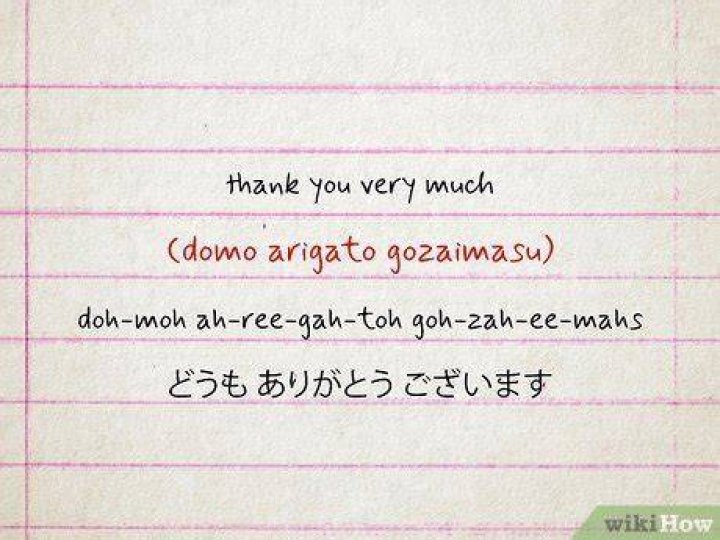 thank you very much
(domo arigato gozaimasu)
doh-moh ah-ree-gah-toh goh-zah-ee-mahs
どうも ありがとう ございます
wikiHow